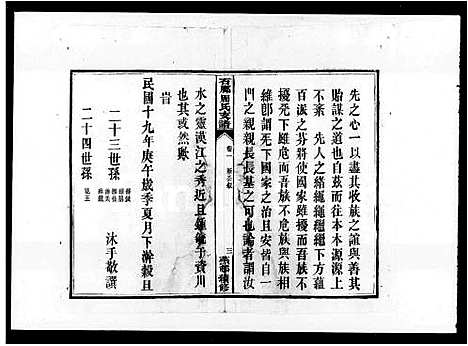 先之心一以盡其收族之誼與善其
貽謀之道也自茲而往本本源源上
不紊先人之緒繩繩繼繼下方蘊
百派之芬將使國家雖擾而吾族不
擾死下雖危而吾族不危族與族相
維卽謂死下國家之治且安皆自一
門之親親長長基之可也論者謂汝
水之靈漢江之秀近且鍾毓于資川
也其或然歟
旹
民國十九年庚午歲季夏月下澣穀旦
二十三世孫
二十四世孫
沐手敬譔
周氏支譜
卷一
三